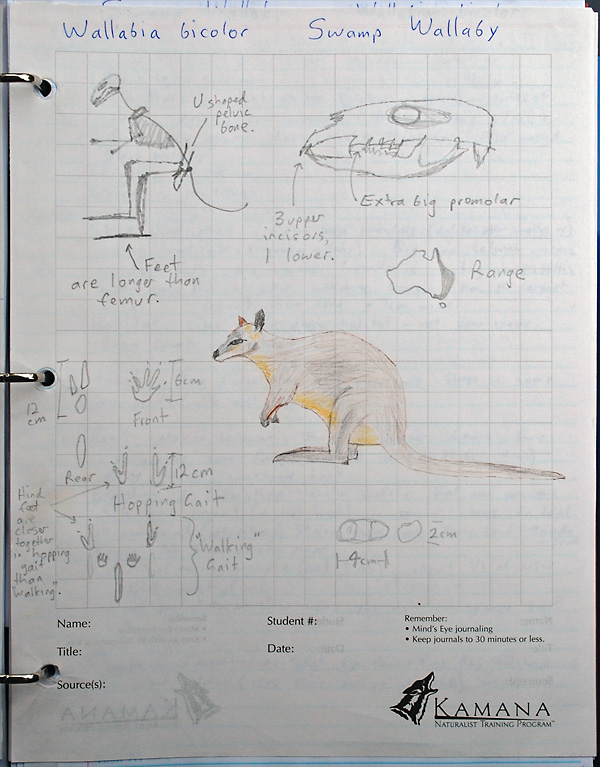 Wallabia bicolor   Swamp Wallaby
U shaped
pelvic
bone.
Extra big premolar
3 upper
incisors,
1 lower.
Feet
are longer than
femur.
Range
12
cm
6cm
Front
Rear
12 cm
Hopping Gait
Hind
feet
are
closer
together
in hopping
gait
than
"walking".
"Walking"
Gait
2cm
4cm
Name:
Student #:
Remember:
• Mind's Eye journaling
• Keep journals to 30 minutes or less.
Title:
Date:
Source(s):
KAMANA
NATURALIST TRAINING PROGRAM™